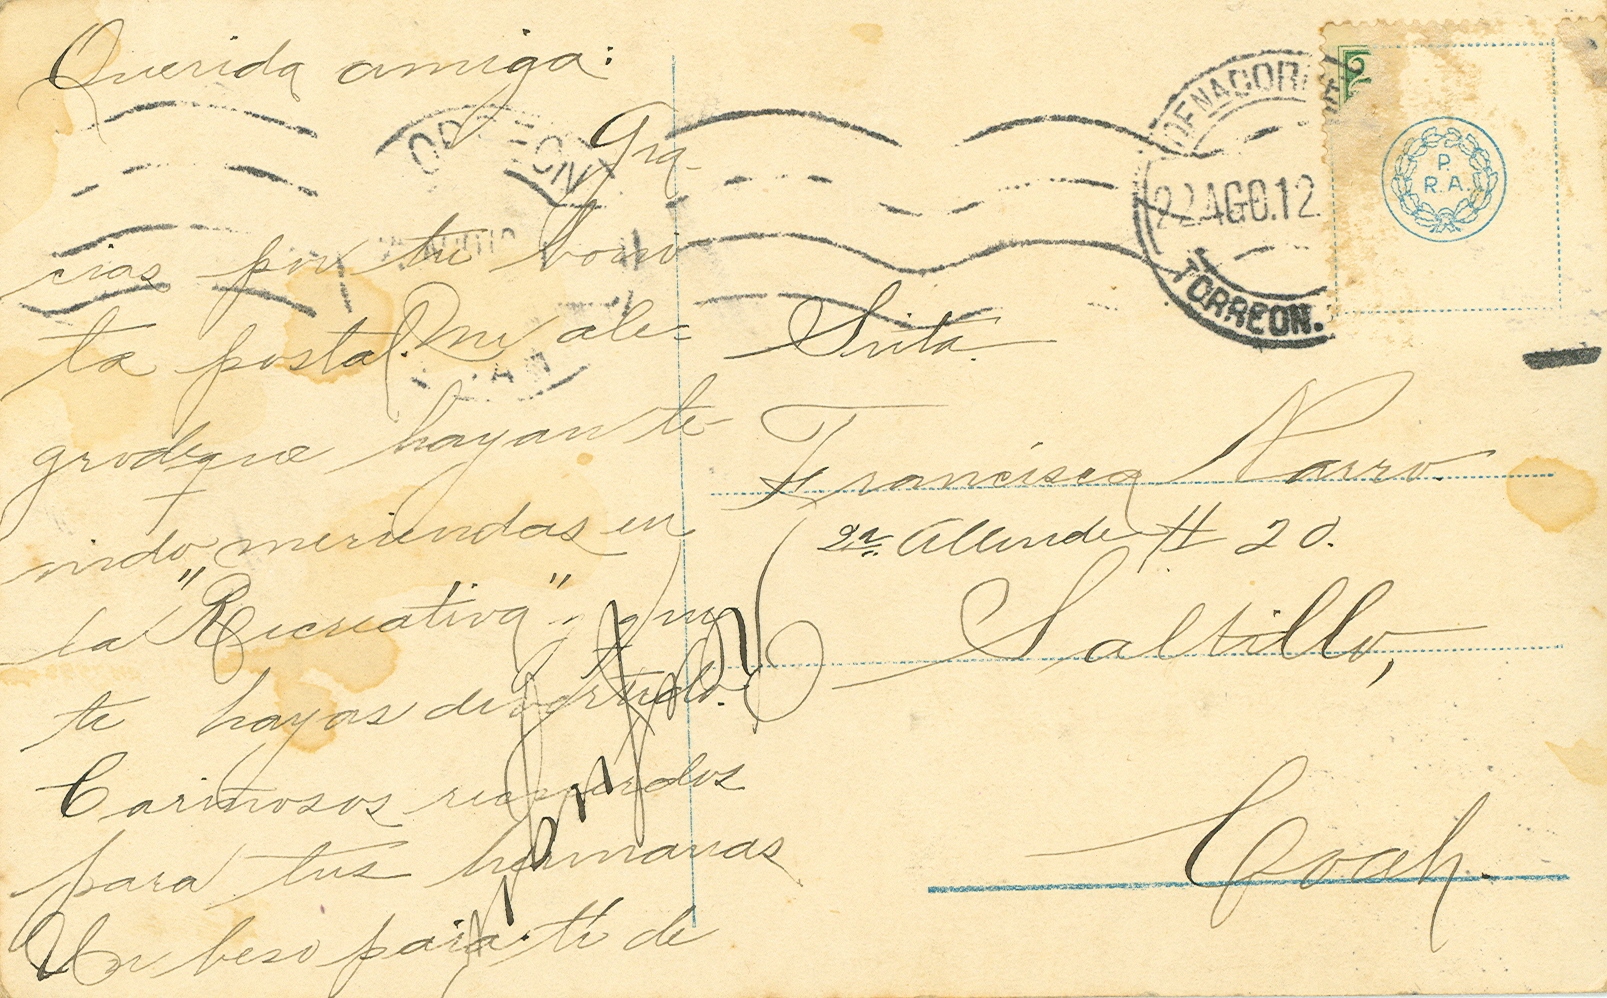 Querida amiga:
Gra-
cias por tu boni
ta postal. Me ale-
gro de que hayan te-
nido meriendas en
la "Recreativa" y que
te hayas divertido.
Cariñosos recuerdos
para tus hermanas
Un beso para ti de
Srita.
Francisca Narro.
2a. Allende # 20.
Saltillo,
Coah.
22 AGO. 12.
TORREON.
P.
R. A.